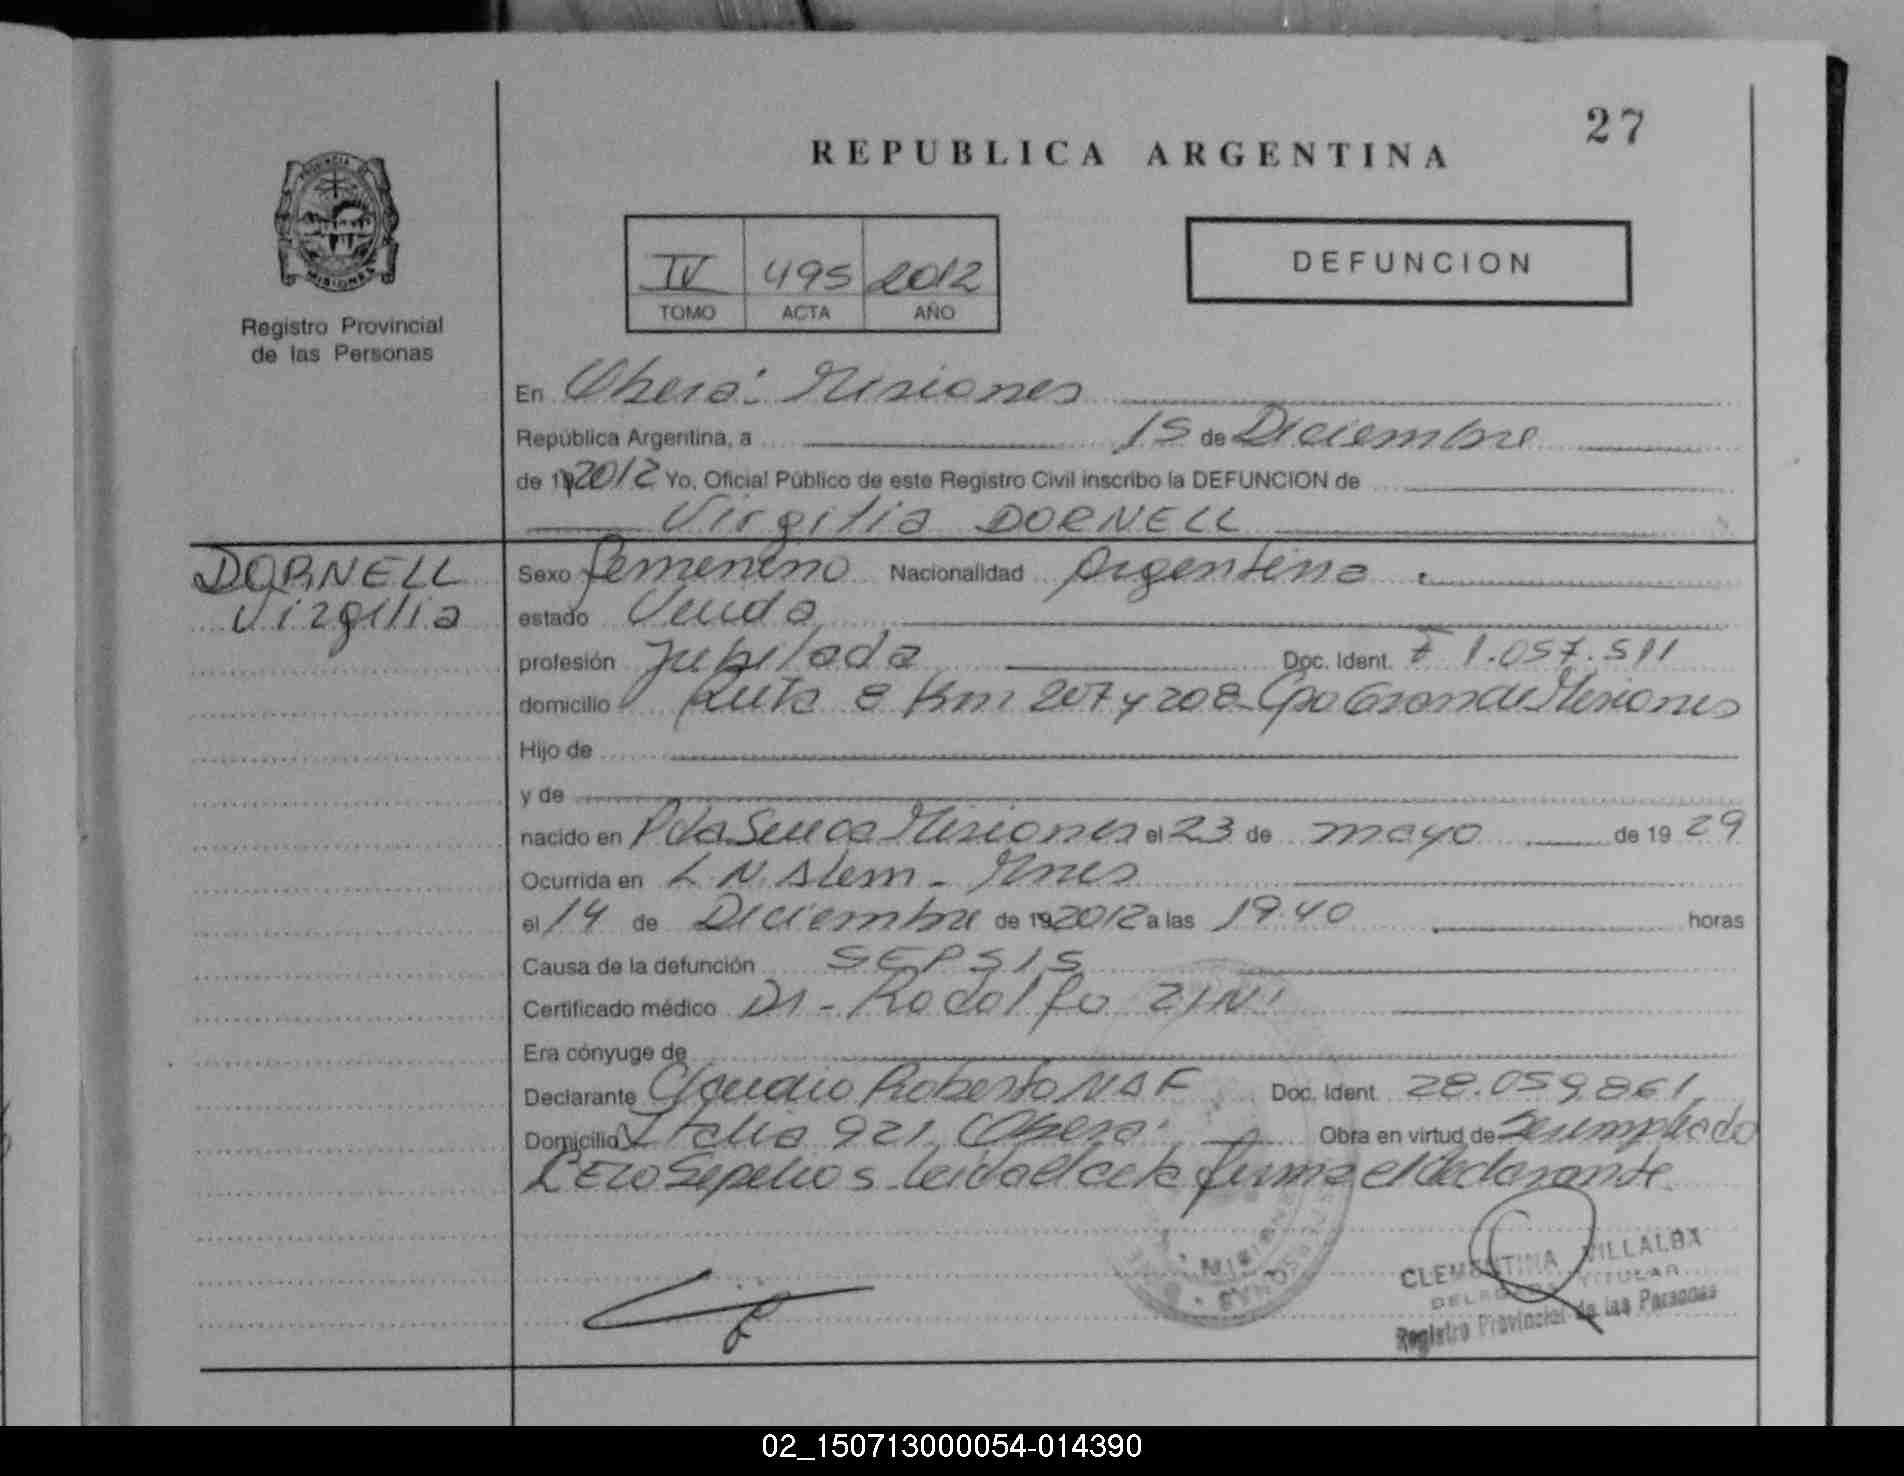 27
REPUBLICA ARGENTINA
PROVINCIA DE
MISIONES
Registro Provincial
de las Personas
IV 495 2012
TOMO ACTA AÑO
DEFUNCION
En Oberá: Misiones
República Argentina, a 15 de Diciembre
de 19 2012 Yo, Oficial Público de este Registro Civil inscribo la DEFUNCION de
Virgilia DORNELL
DORNELL
Virgilia
Sexo femenino Nacionalidad Argentina.
estado Viuda
profesión Jubilada Doc. Ident. F 1.057.511
domicilio Ruta 8 Km 207 y 208 Cpo Grande Misiones
Hijo de
y de
nacido en Pda Misiones el 23 de mayo de 19 29
Ocurrida en L. N. Alem - Mnes
el 14 de Diciembre de 19 2012 a las 19.40 horas
Causa de la defunción SEPSIS
Certificado médico Dr - Rodolfo ZINI
Era cónyuge de
Declarante Claudio Roberto NAF Doc. Ident. 28.059.861
Domicilio Italia 921 Oberá Obra en virtud de Ser empleado
Sepelios leida el acta firma el declarante
MISIONES
CLEMENTINA VILLALBA
DELEGADA TITULAR
Registro Provincial de las Personas
02_150713000054-014390